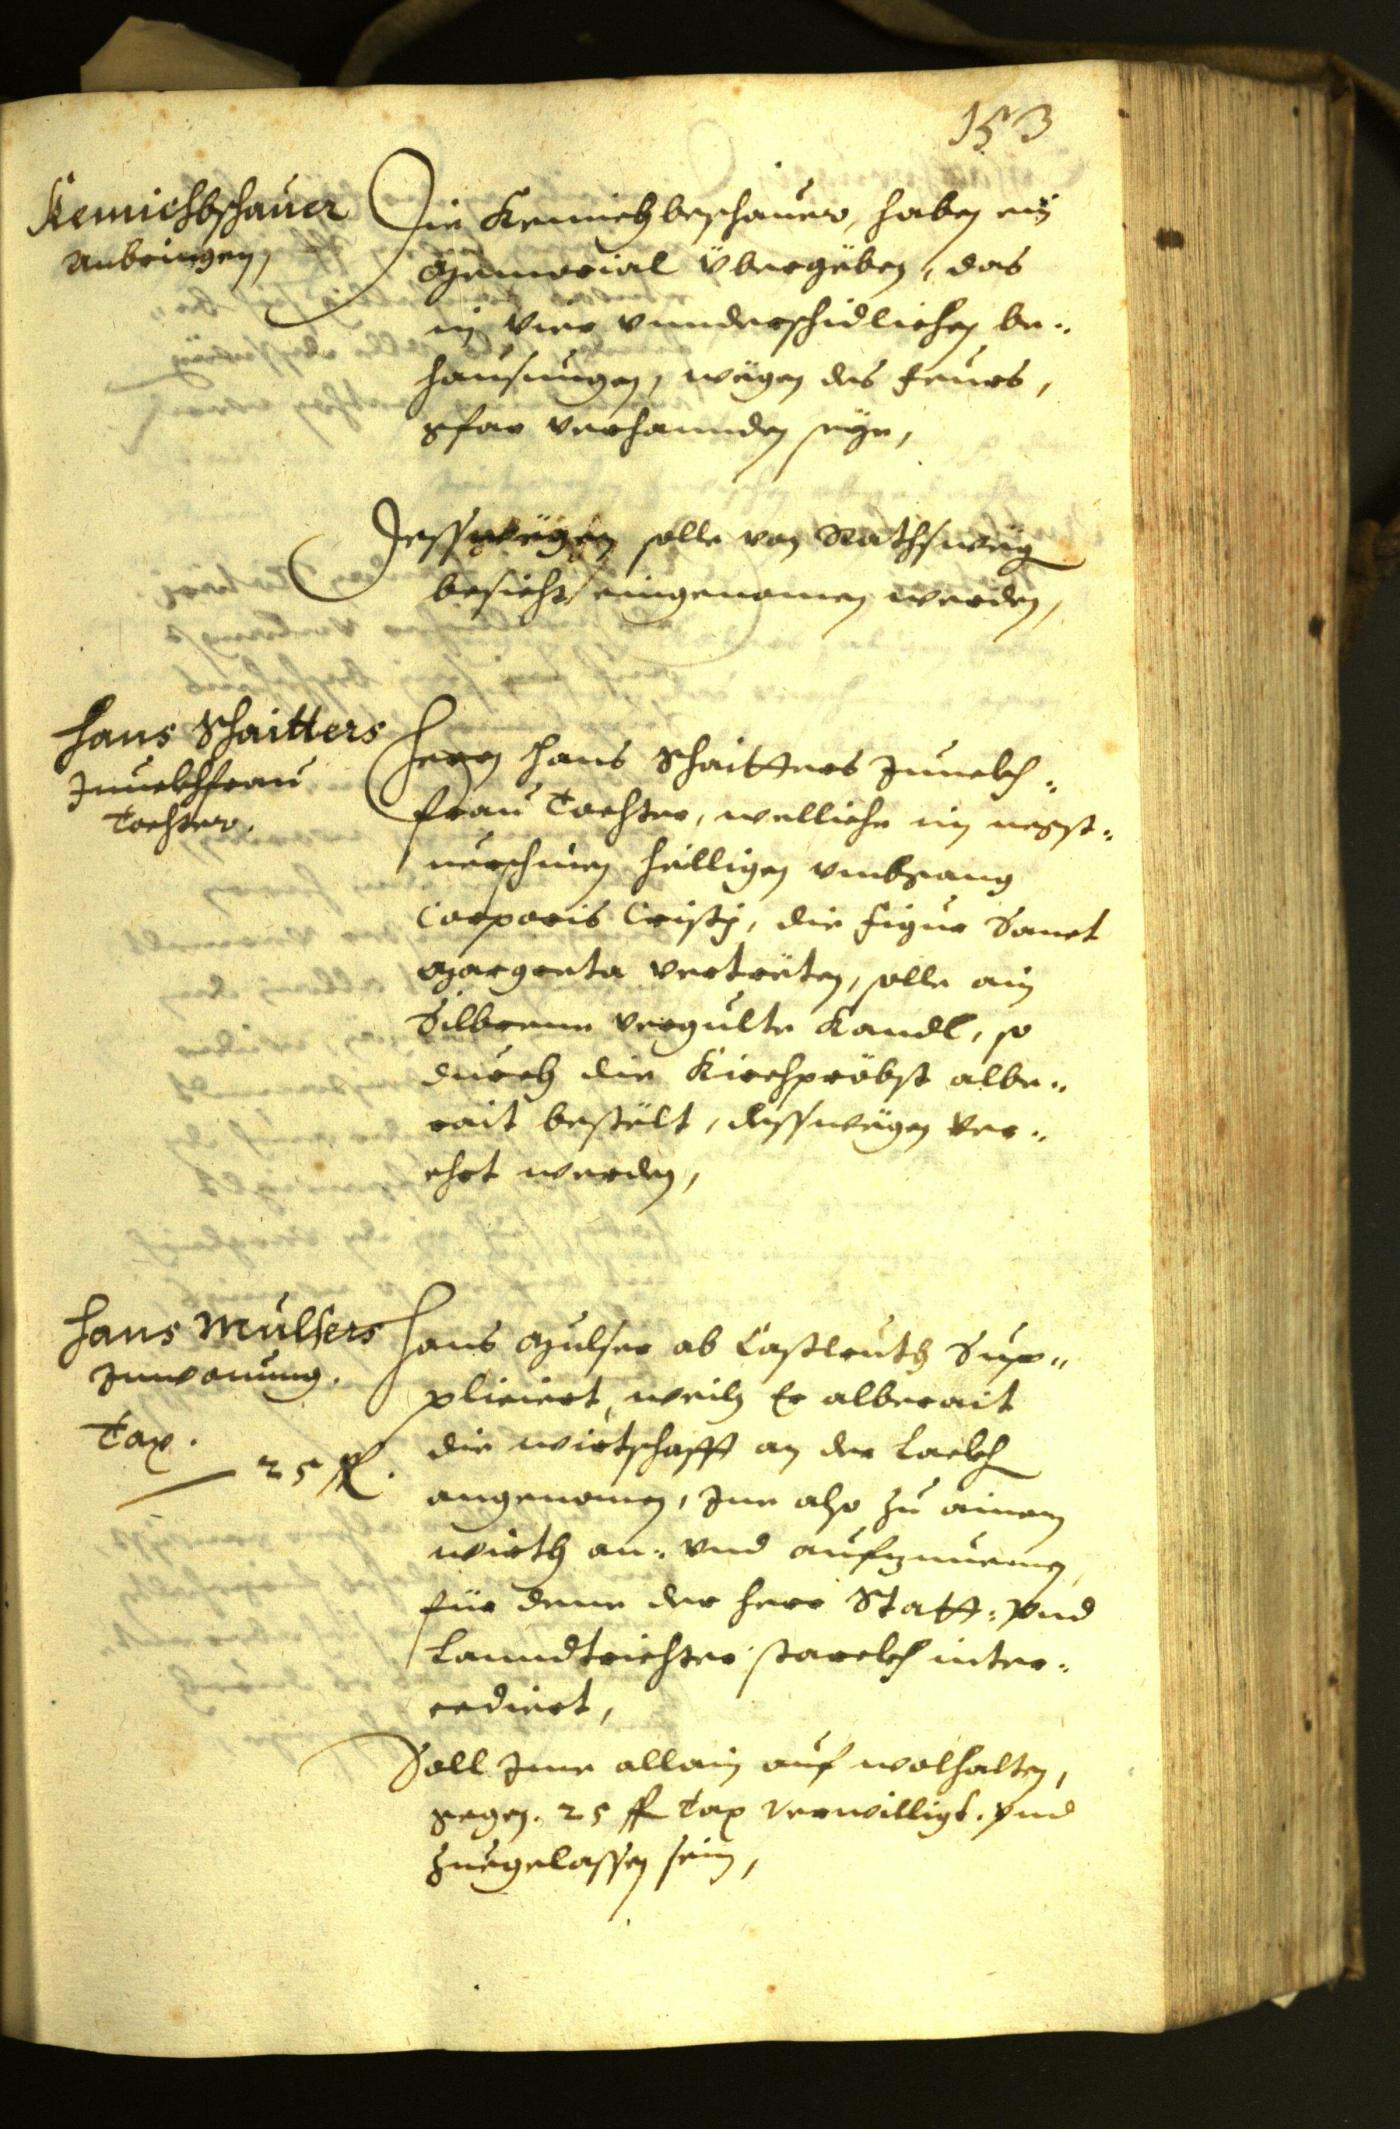 153
Kemichbschauer
Anbringen,
Die Kemichbeschauer, haben ein
Memorial übergeben, das
in vier vnnderschidlichen be-
hausungen, wegen des feurs,
gfar verhannden seye,
Desswegen solle von Rathsweg
besicht eingenomen werden,
Hans Schaitters
Junckhfrau
Tochter.
Herrn Hans Schaitters Junckh-
frau Tochter, welliche im negst-
uerschinen heilligen vmbgang
Corporis Cristj, die figur Sanct
Margreta vertreten, solle ain
Silbrene vergulte Kandl, so
durch die Kirchpröbst albe-
rait bestelt, desswegen ver-
ehrt werden,
Hans Mulsers
Inwonung.
Tax.
25 fl.
Hans Mulser ab Castlruth Sup-
pliciert, weiln Er alberait
die wirtschafft an der Lackh
angenomen, Ine also zu ainem
wirth an- vnd aufzunemen,
für dene der herr Statt- vnd
Lanndtrichter starckh inter-
cediert,
Soll Ime allain auf wolhalten,
gegen. 25 fl Tax verwilligt. vnd
zuegelassen sein,